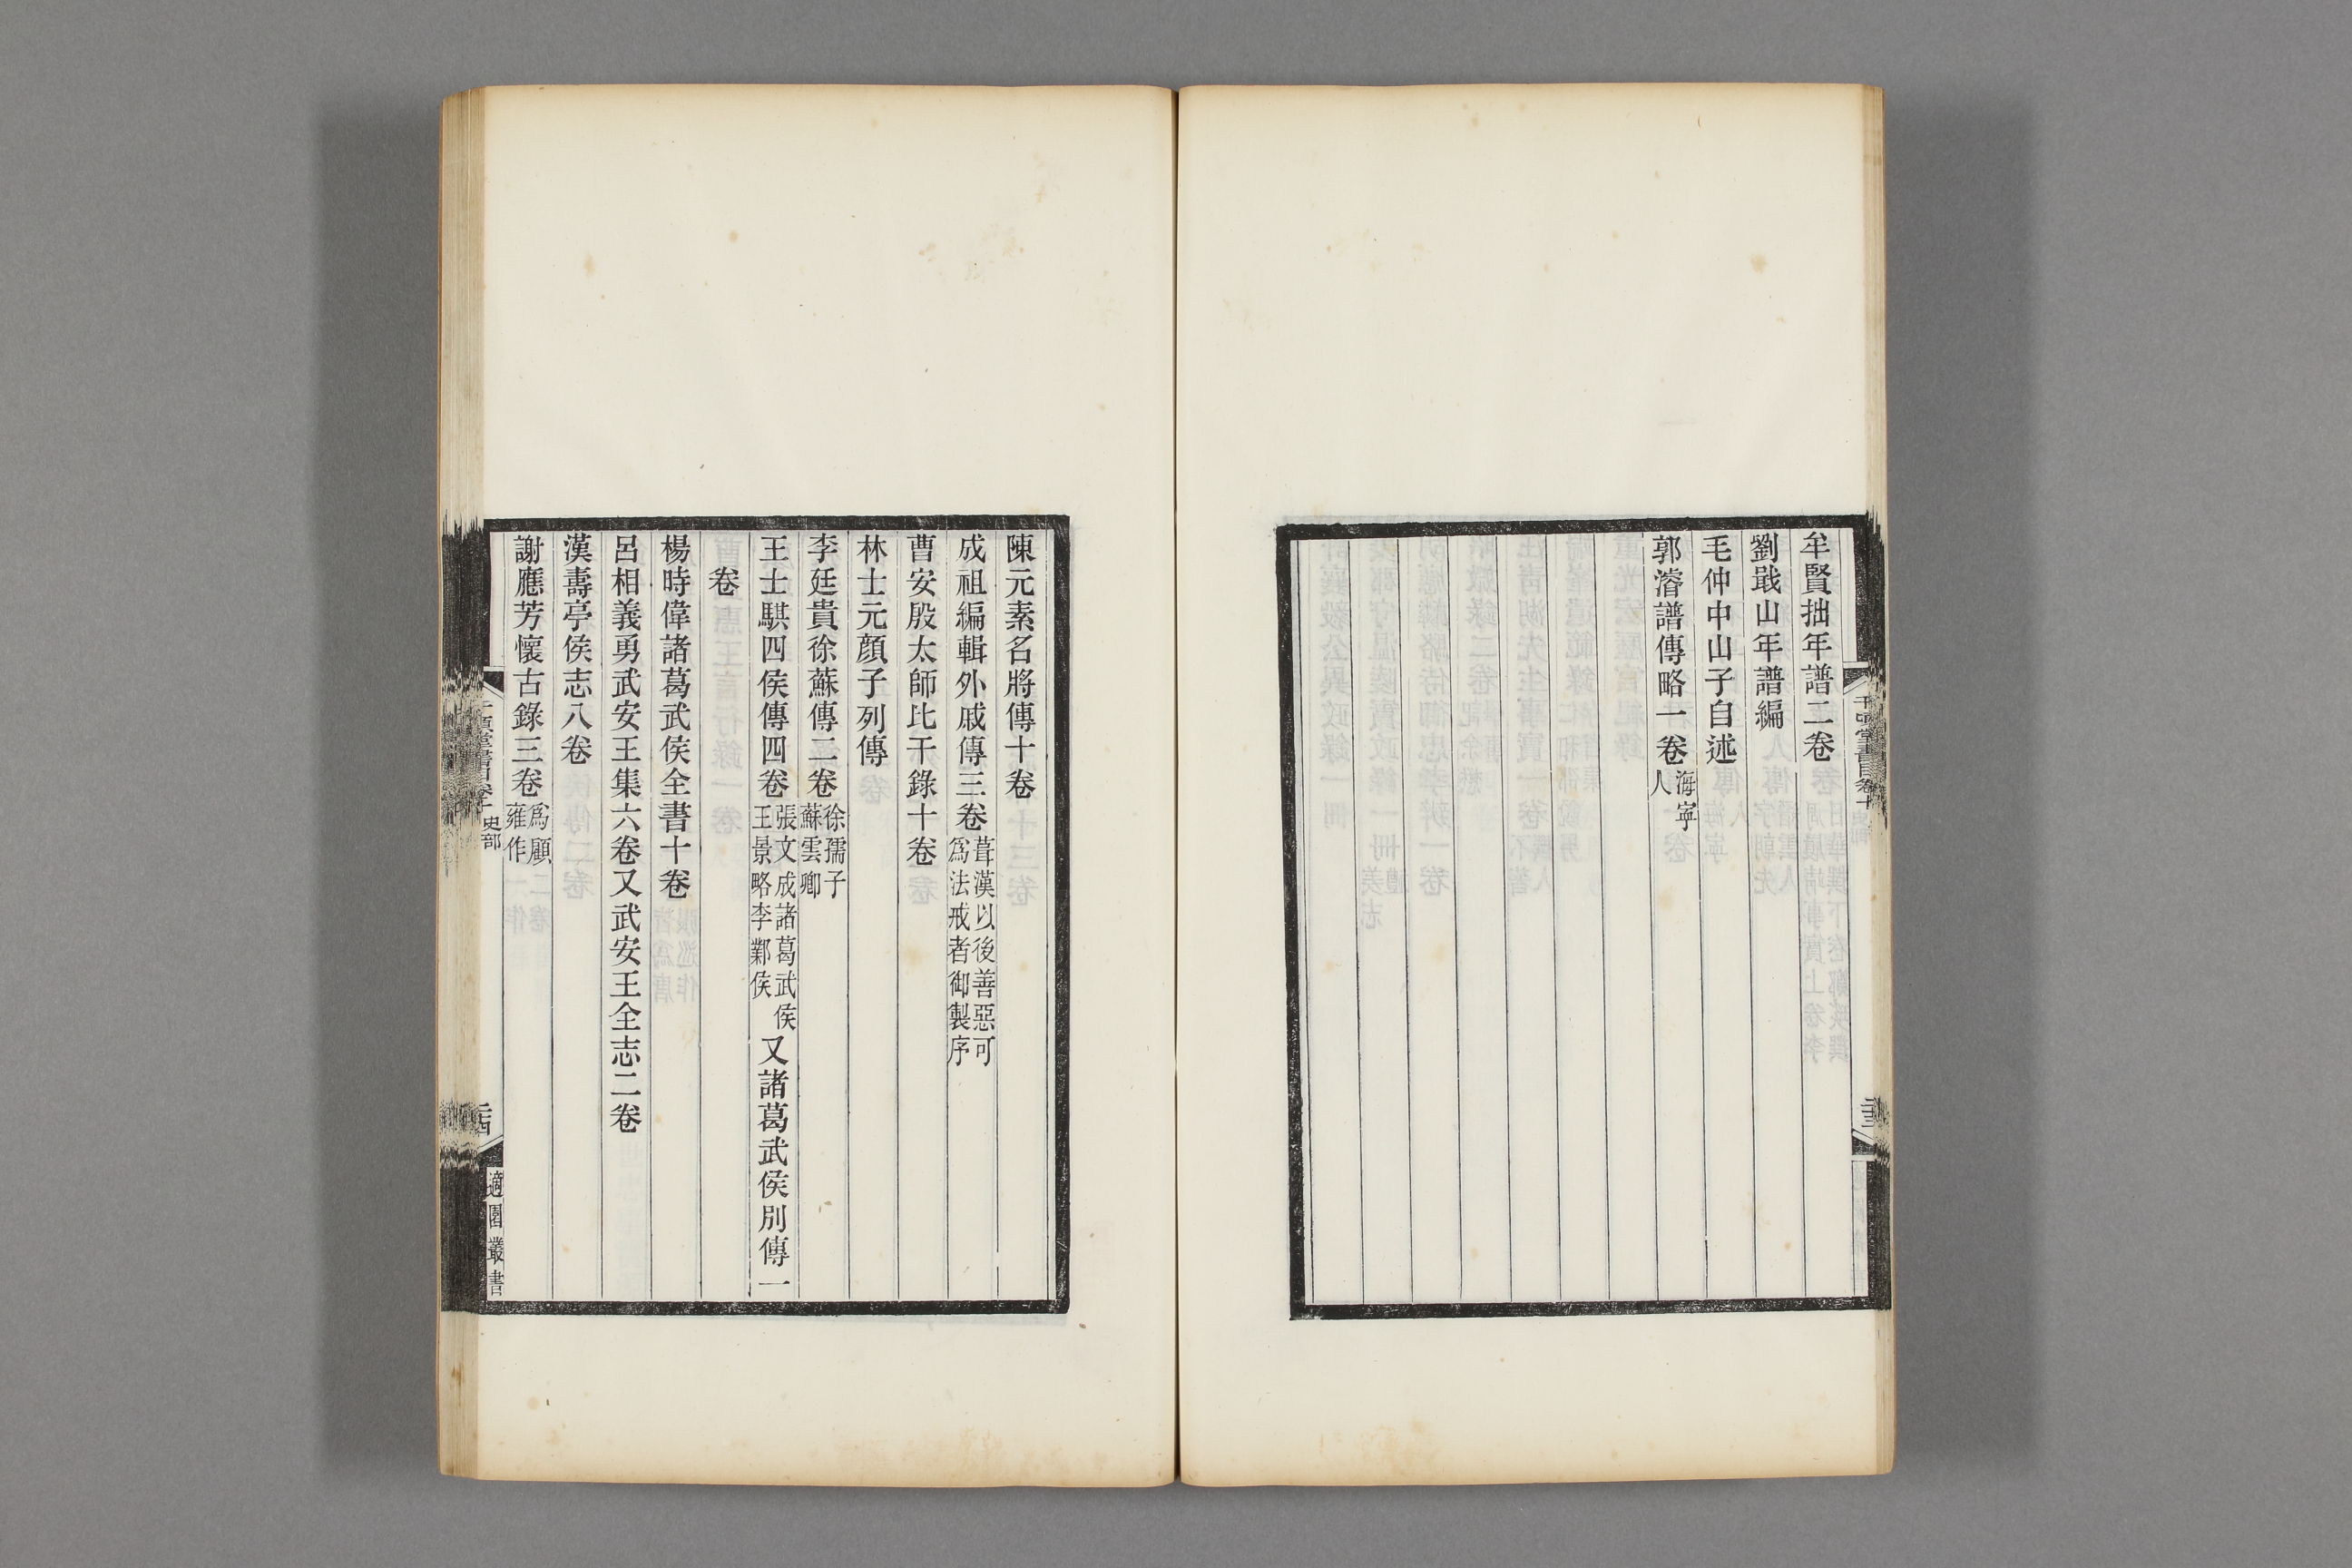 牟賢拙年譜二卷
劉戢山年譜編
毛仲中山子自述
郭濬譜傳略一卷海寧人
千頃堂書目卷十
二十三
陳元素名將傳十卷
成祖編輯外戚傳三卷葺漢以後善惡可爲法戒者御製序
曹安殷太師比干錄十卷
林士元顏子列傳
李廷貴徐蘇傳二卷徐孺子蘇雲卿
王士騏四侯傳四卷張文成諸葛武侯王景略李鄴侯又諸葛武侯別傳一
卷
楊時偉諸葛武侯全書十卷
呂相義勇武安王集六卷又武安王全志二卷
漢壽亭侯志八卷
謝應芳懷古錄三卷爲顧雍作
千頃堂書目卷十 史部
二十四
適園叢書